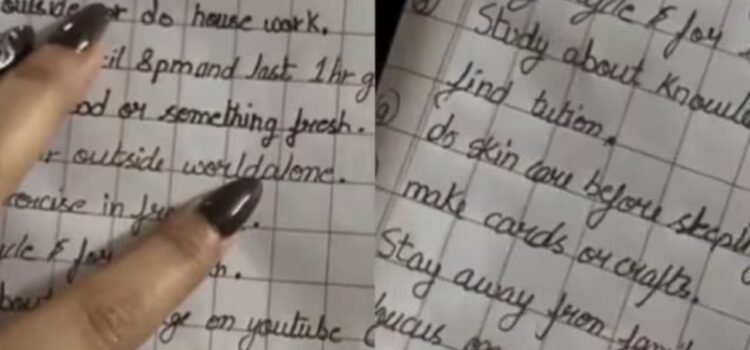 outside or do house work.
til 8pm and last 1hr g
od or something fresh.
or outside world alone.
ercise in
cycle & for h.
bout ge on youtube
cycle & for
Study about Knowle
find tution.
do skin care before sleepi
make cards or crafts.
Stay away from fami